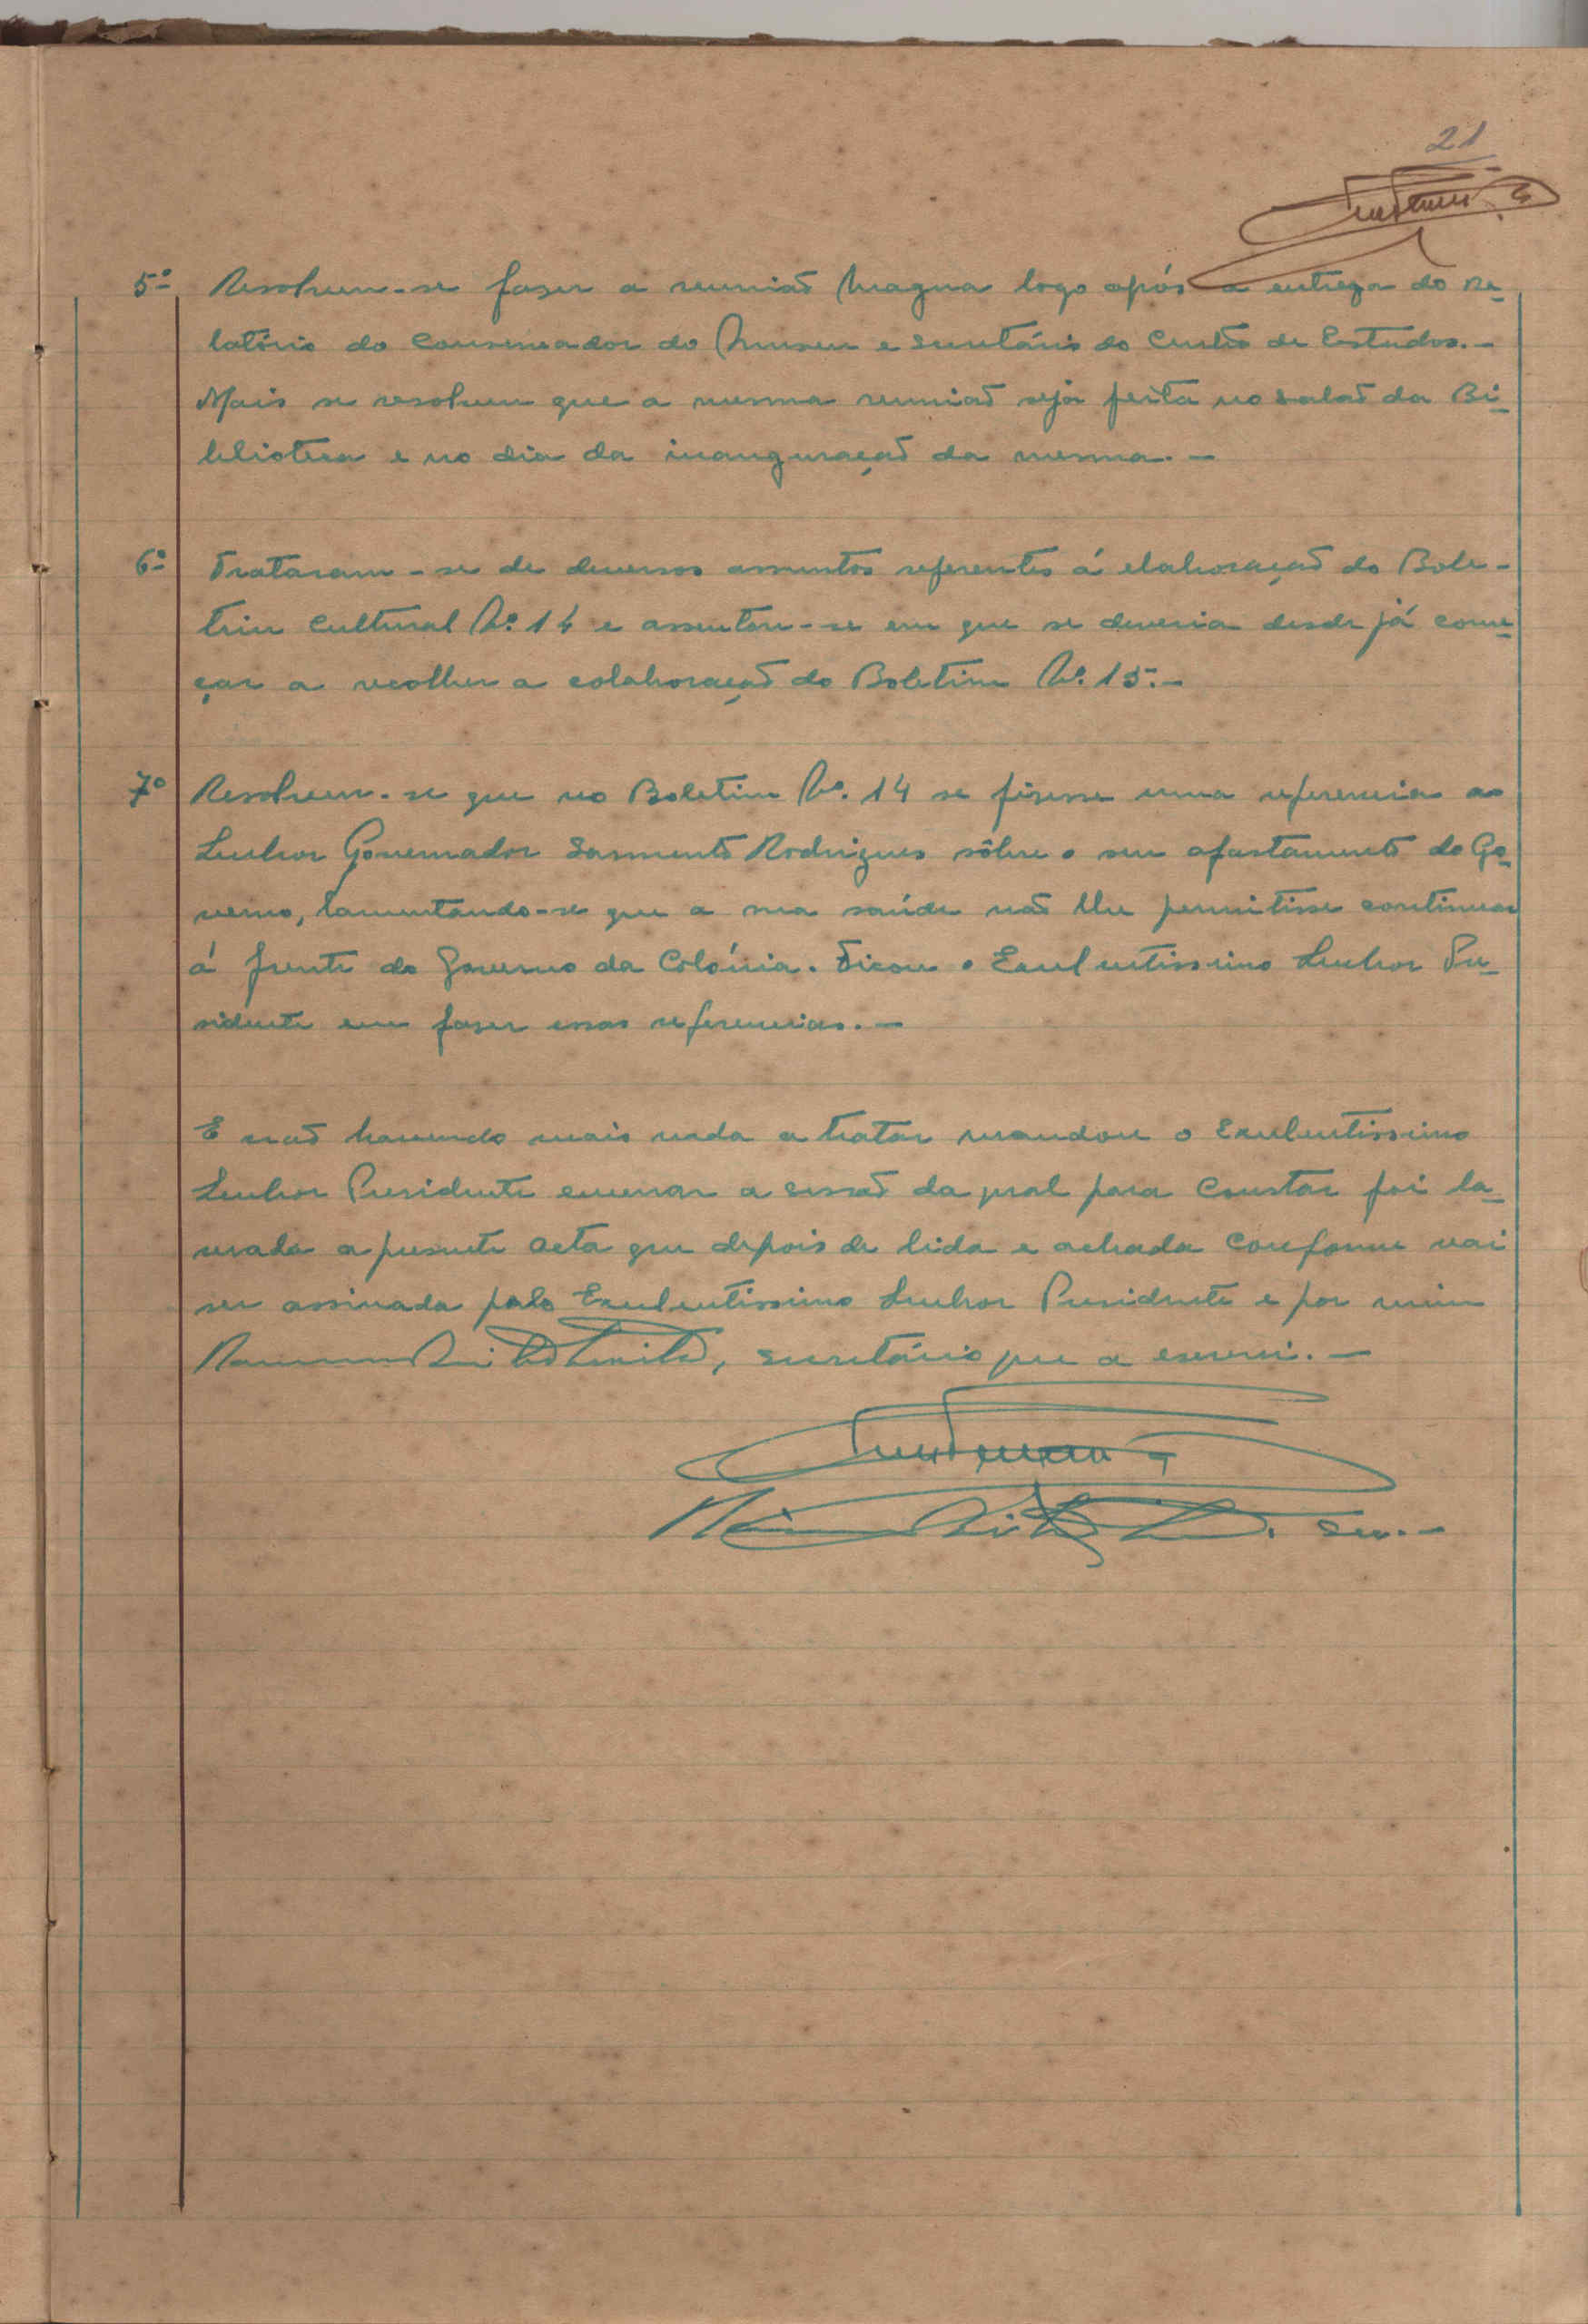 21
5º Resolveu-se faser a reunião Magna logo após a entrega do re-
latório do Conservador do Museu e secretário do Centro de Estudos.-
Mais se resolveu que a mesma reunião seja feita no salão da Bi-
blioteca e no dia da inauguração da mesma.-
6º Trataram-se de diversos assuntos referentes á elaboração do Bole-
tim Cultural Nº 14 e assentou-se em que se deveria desde já come-
çar a recolher a colaboração do Boletim Nº. 15.-
7º Resolveu-se que no Boletim Nº. 14 se fisesse uma referencia ao
Senhor Governador Sarmento Rodrigues sôbre o seu afastamento do Go-
verno, lamentando-se que a sua saúde não lhe permitisse continuar
á frente do Governo da Colónia. Ficou o Excelentissimo Senhor Pre-
sidente em faser essas referencias.-
E não havendo mais nada a tratar mandou o Excelentissimo
Senhor Presidente encerrar a sessão da qual para constar foi la-
vrada a presente acta que depois de lida e achada conforme vai
ser assinada pelo Excelentissimo Senhor Presidente e por mim
, secretário que a escrevi.-
Sec.-